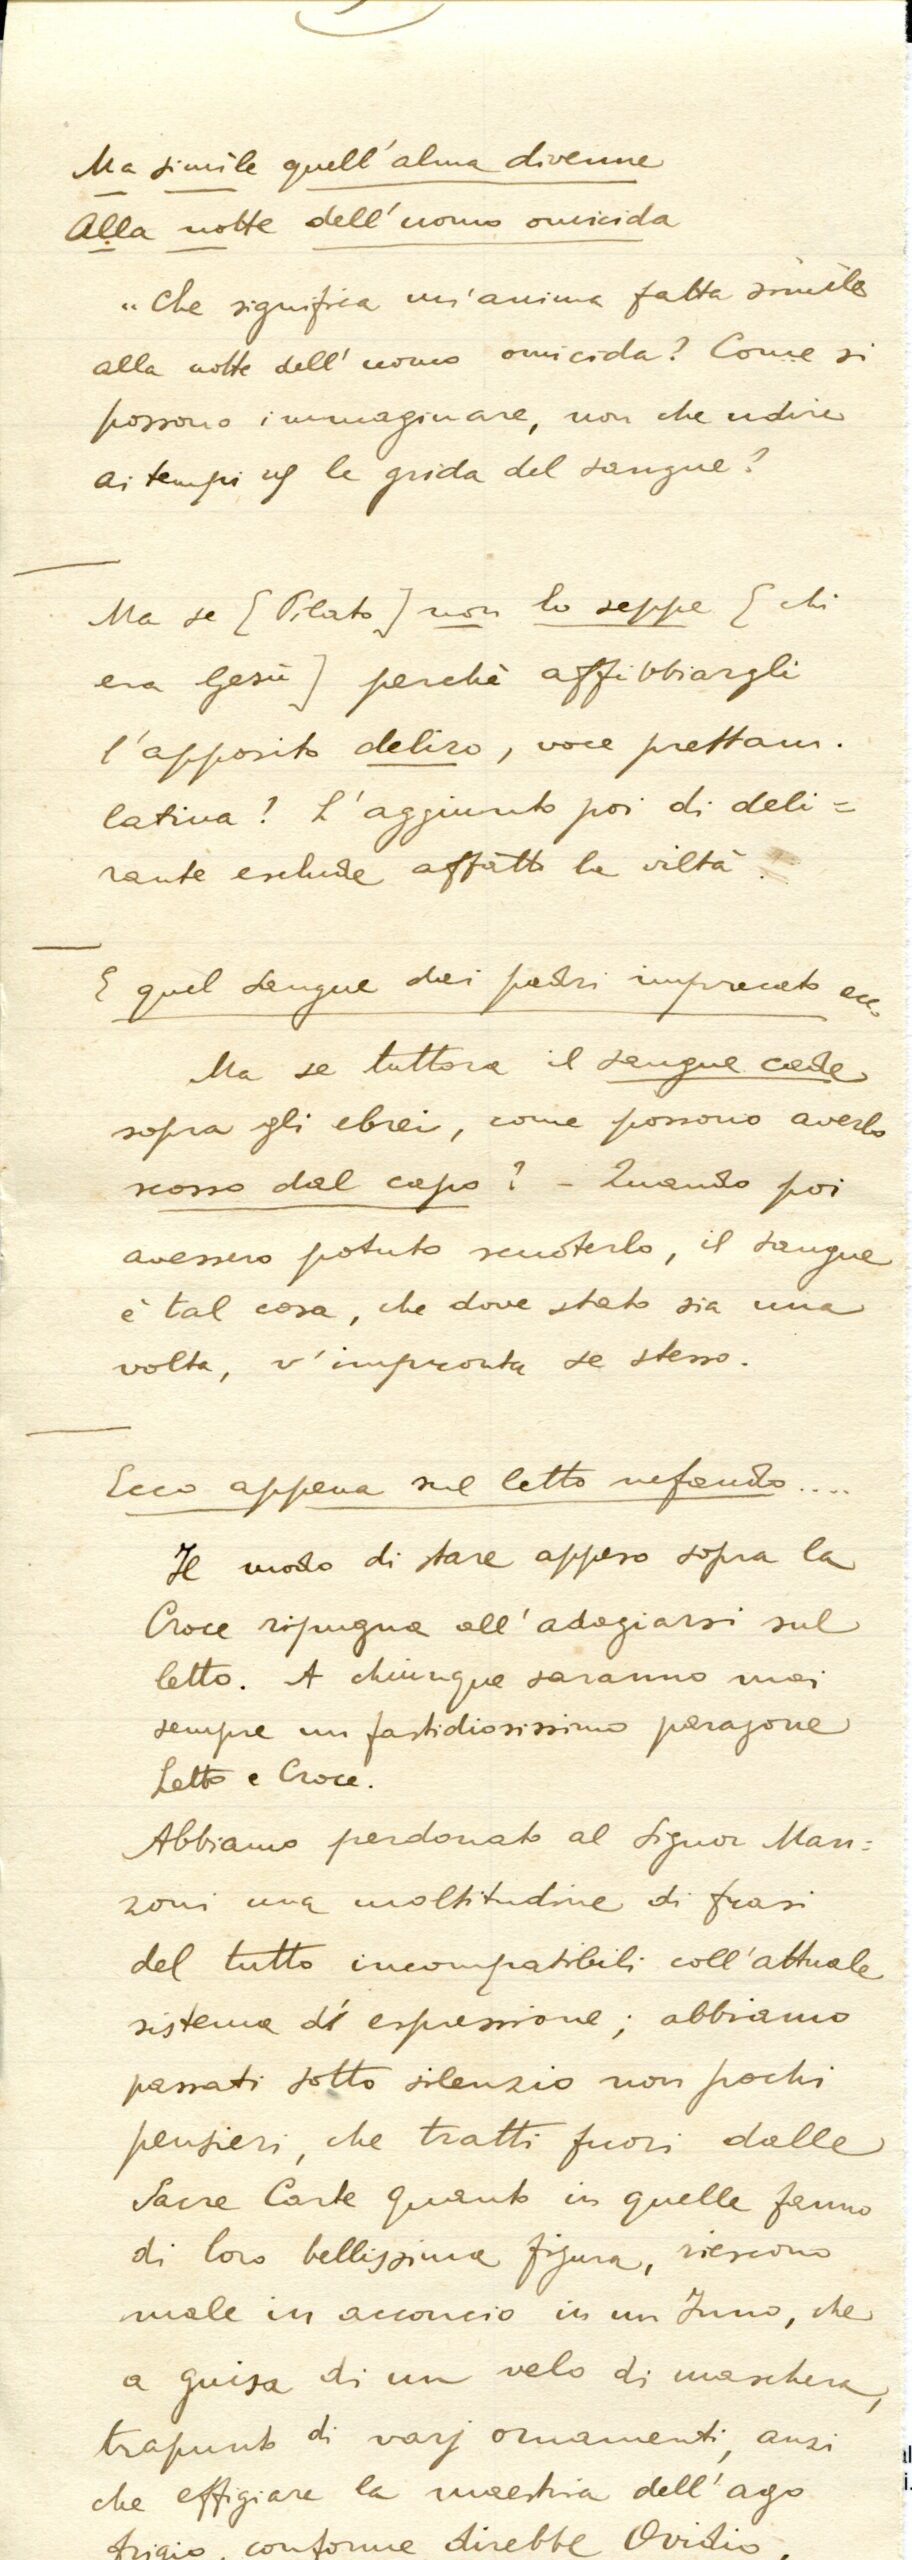 Ma simile quell'alma divenne
Alla notte dell'uomo omicida
"Che significa un'anima fatta simile
alla notte dell'uomo omicida? Come si
possono immaginare, non che udire
ai tempi le grida del sangue?
Ma se [Pilato] non lo seppe [chi
era Gesù] perchè affibbiargli
l'apposito deliro, voce prettam.
latina? L'aggiunto poi di deli=
rante esclude affatto la viltà.
E quel sangue dai padri imprecato ecc.
Ma se tuttora il sangue cade
sopra gli ebrei, come possono averlo
scosso dal capo? - Quando poi
avessero potuto scuoterlo, il sangue
è tal cosa, che dove stato sia una
volta, v'impronta se stesso.
Ecco appena sul letto nefando....
Il modo di stare appeso sopra la
Croce ripugna all'adagiarsi sul
letto. A chiunque saranno mai
sempre un fastidiosissimo paragone
Letto e Croce.
Abbiamo perdonato al Signor Man=
zoni una moltitudine di frasi
del tutto incompatibili coll'attuale
sistema di espressione; abbiamo
passati sotto silenzio non pochi
pensieri, che tratti fuori dalle
Sacre Carte quanto in quelle fanno
di loro bellissima figura, riescono
male in acconcio in un Inno, che
a guisa di un velo di maschera,
trapunto di varj ornamenti, anzi
che effigiare la maestria dell'ago
frigio, conforme direbbe Ovidio,